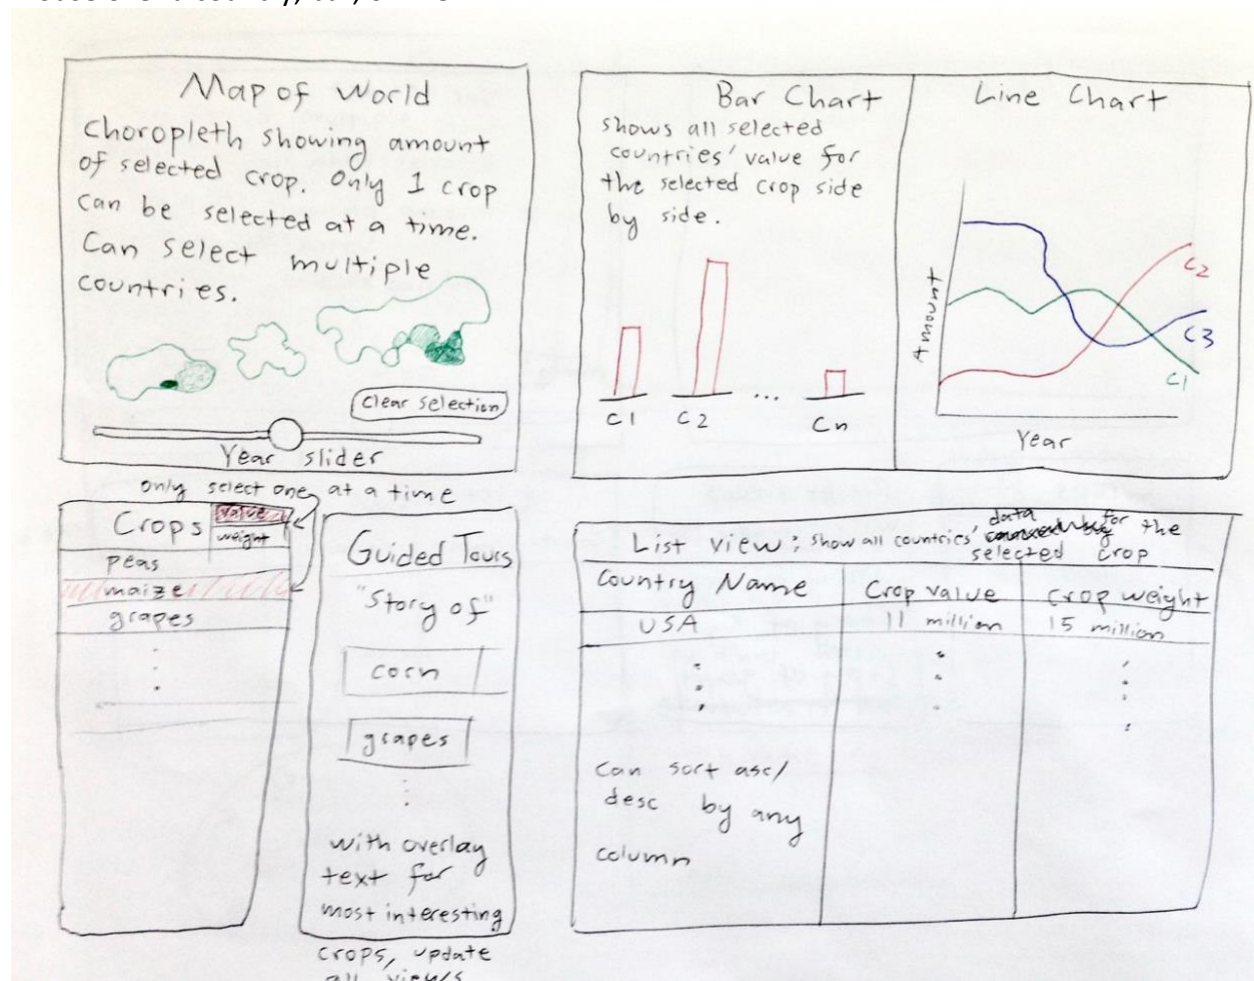 Map of World
Choropleth showing amount
of selected crop. Only 1 crop
can be selected at a time.
Can select multiple
countries.
Clear selection
Year slider
Bar Chart
shows all selected
countries' value for
the selected crop side
by side.
C1 C2 ... Cn
Line Chart
Amount
C2
C3
C1
Year
only select one at a time
Crops
value
weight
peas
maize
grapes
Guided Tours
"Story of"
corn
grapes
with overlay
text for
most interesting
crops, update
all views
List view: Show all countries' data for the
selected crop
Country Name Crop value Crop weight
USA 11 million 15 million
Can sort asc/
desc by any
column